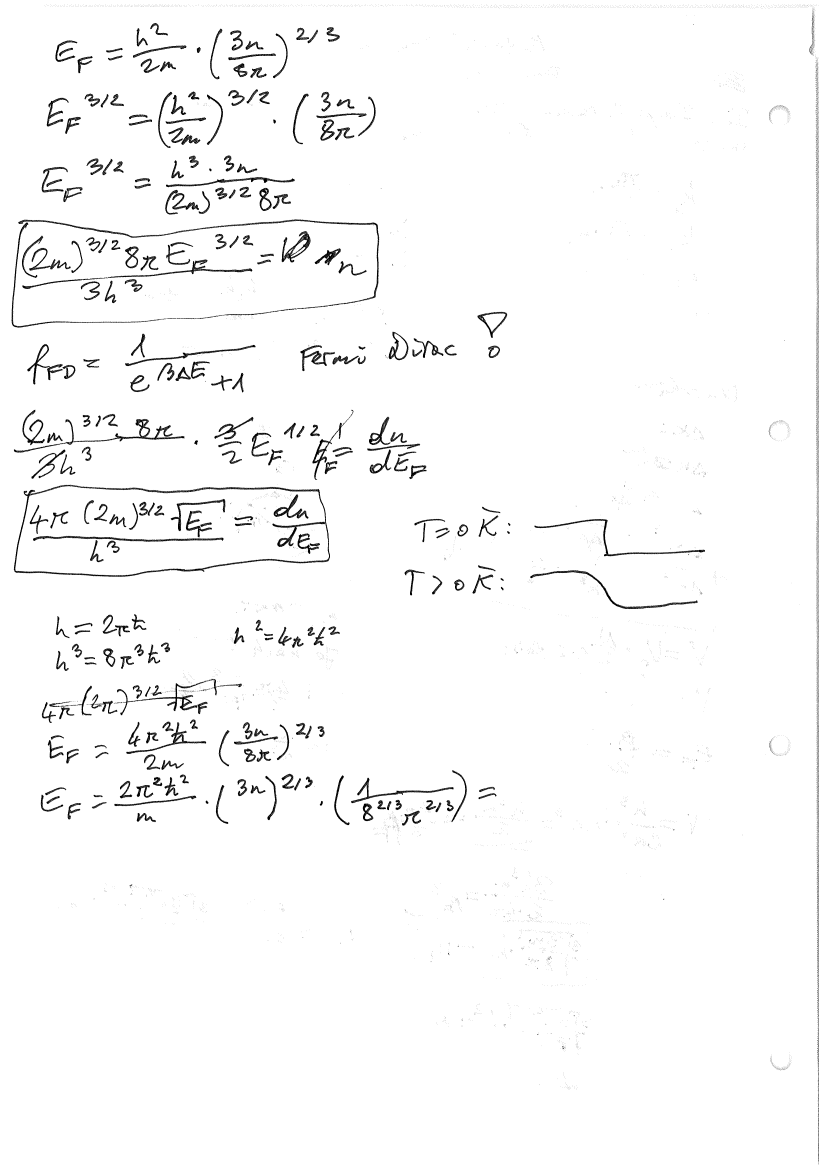 E_F = h²/2m · (3n/8π)^2/3
E_F^3/2 = (h²/2m)^3/2 · (3n/8π)
E_F^3/2 = h³ · 3n/(2m)^3/2 8π
(2m)^3/2 8π E_F^3/2/3h³ = n
f_FD = 1/e^βΔE +1 Fermi Dirac !
(2m)^3/2 · 8π/3h³ · 3/2 E_F^1/2 = dn/dE_F
4π (2m)^3/2 √E_F/h³ = dn/dE_F
T=0 K:
T>0 K:
h = 2πħ h² = 4π²ħ²
h³ = 8π³ħ³
4π(2π)^3/2 √E_F
E_F = 4π²ħ²/2m (3n/8π)^2/3
E_F = 2π²ħ²/m · (3n)^2/3 · (1/8^2/3 π^2/3) =